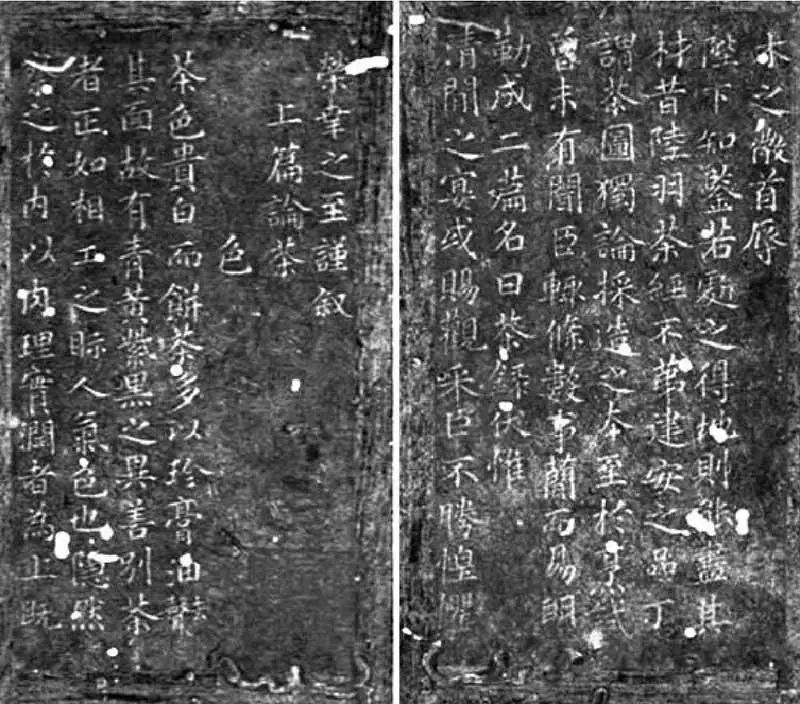 木之微首辱
陛下知鑒若處之得地則能盡其
材昔陸羽茶經不第建安之品丁
謂茶圖獨論採造之本至於烹試
曾未有聞臣輒條數事簡而易明
勒成二篇名曰茶錄伏惟
清閒之宴或賜觀采臣不勝惶懼
榮幸之至謹叙
上篇論茶
色
茶色貴白而餅茶多以珍膏油
其面故有青黃紫黑之異善別茶
者正如相工之眎人氣色也隱然
察之於內以肉理實潤者為上既